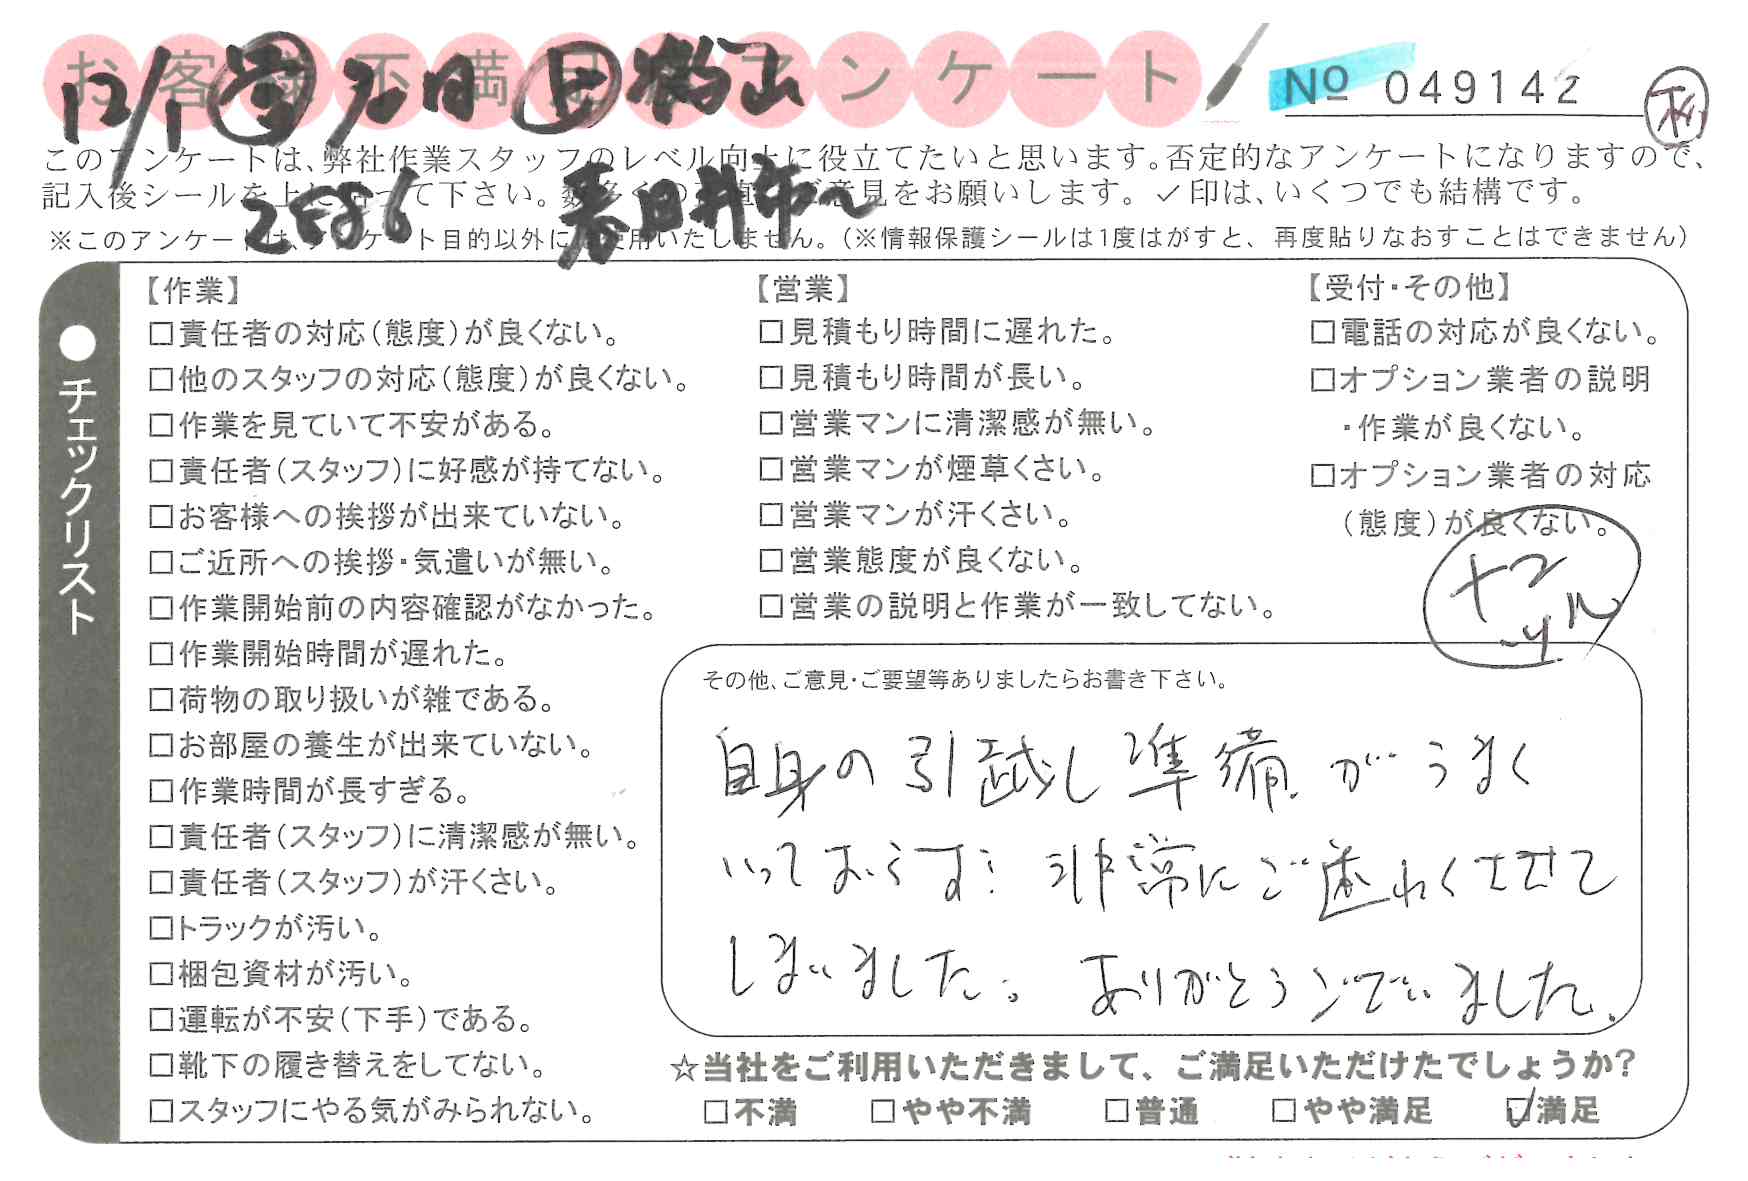 お客様不満足度アンケート
No 049142
このアンケートは、弊社作業スタッフのレベル向上に役立てたいと思います。否定的なアンケートになりますので、
記入後シールを上に貼って下さい。数多くの ご意見をお願いします。✓印は、いくつでも結構です。
※このアンケートは、アンケート目的以外には使用いたしません。(※情報保護シールは1度はがすと、再度貼りなおすことはできません)
12/1
2586 春日井市
●チェックリスト
【作業】
□責任者の対応(態度)が良くない。
□他のスタッフの対応(態度)が良くない。
□作業を見ていて不安がある。
□責任者(スタッフ)に好感が持てない。
□お客様への挨拶が出来ていない。
□ご近所への挨拶・気遣いが無い。
□作業開始前の内容確認がなかった。
□作業開始時間が遅れた。
□荷物の取り扱いが雑である。
□お部屋の養生が出来ていない。
□作業時間が長すぎる。
□責任者(スタッフ)に清潔感が無い。
□責任者(スタッフ)が汗くさい。
□トラックが汚い。
□梱包資材が汚い。
□運転が不安(下手)である。
□靴下の履き替えをしてない。
□スタッフにやる気がみられない。
【営業】
□見積もり時間に遅れた。
□見積もり時間が長い。
□営業マンに清潔感が無い。
□営業マンが煙草くさい。
□営業マンが汗くさい。
□営業態度が良くない。
□営業の説明と作業が一致してない。
【受付・その他】
□電話の対応が良くない。
□オプション業者の説明
・作業が良くない。
□オプション業者の対応
(態度)が良くない。
その他、ご意見・ご要望等ありましたらお書き下さい。
自身の引越し準備がうまく
いっておらず 非常にご させて
しまいました。ありがとうございました。
☆当社をご利用いただきまして、ご満足いただけたでしょうか?
□不満 □やや不満 □普通 □やや満足 ☑満足